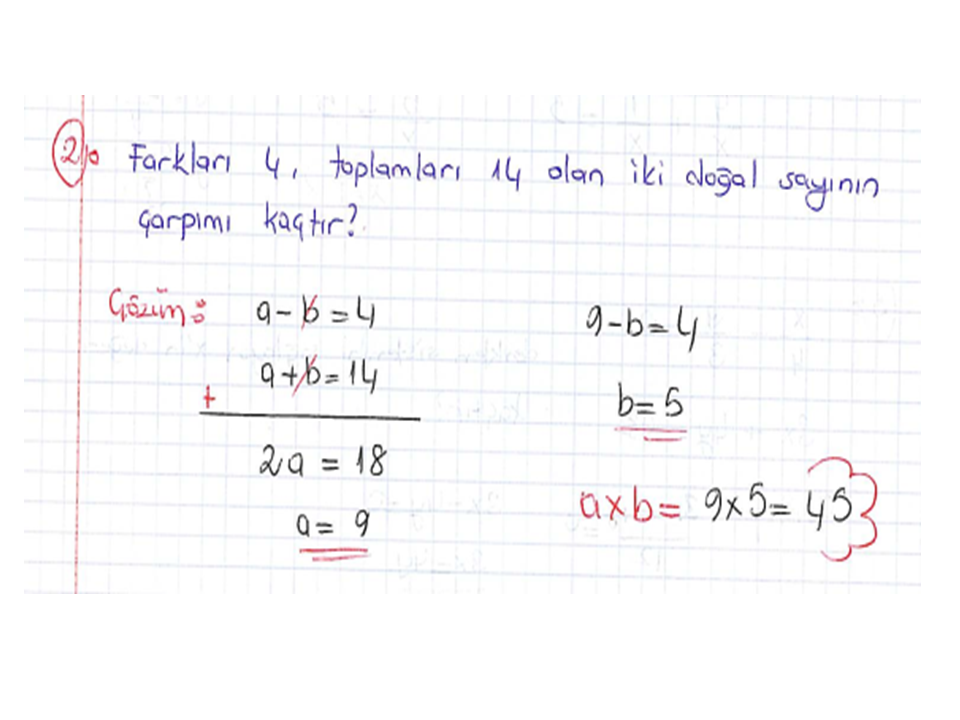 2) Farkları 4, toplamları 14 olan iki doğal sayının
çarpımı kaçtır?
Çözüm: a-b=4
a+b=14
+
2a = 18
a= 9
9-b=4
b=5
axb= 9x5= 45